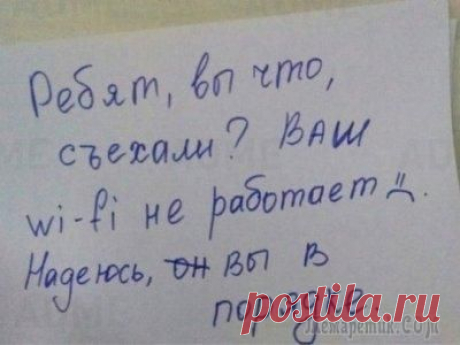 Ребят, вы что,
съехали? ВАШ
wi-fi не работает
Надеюсь, он вы в
порядке
postila.ru